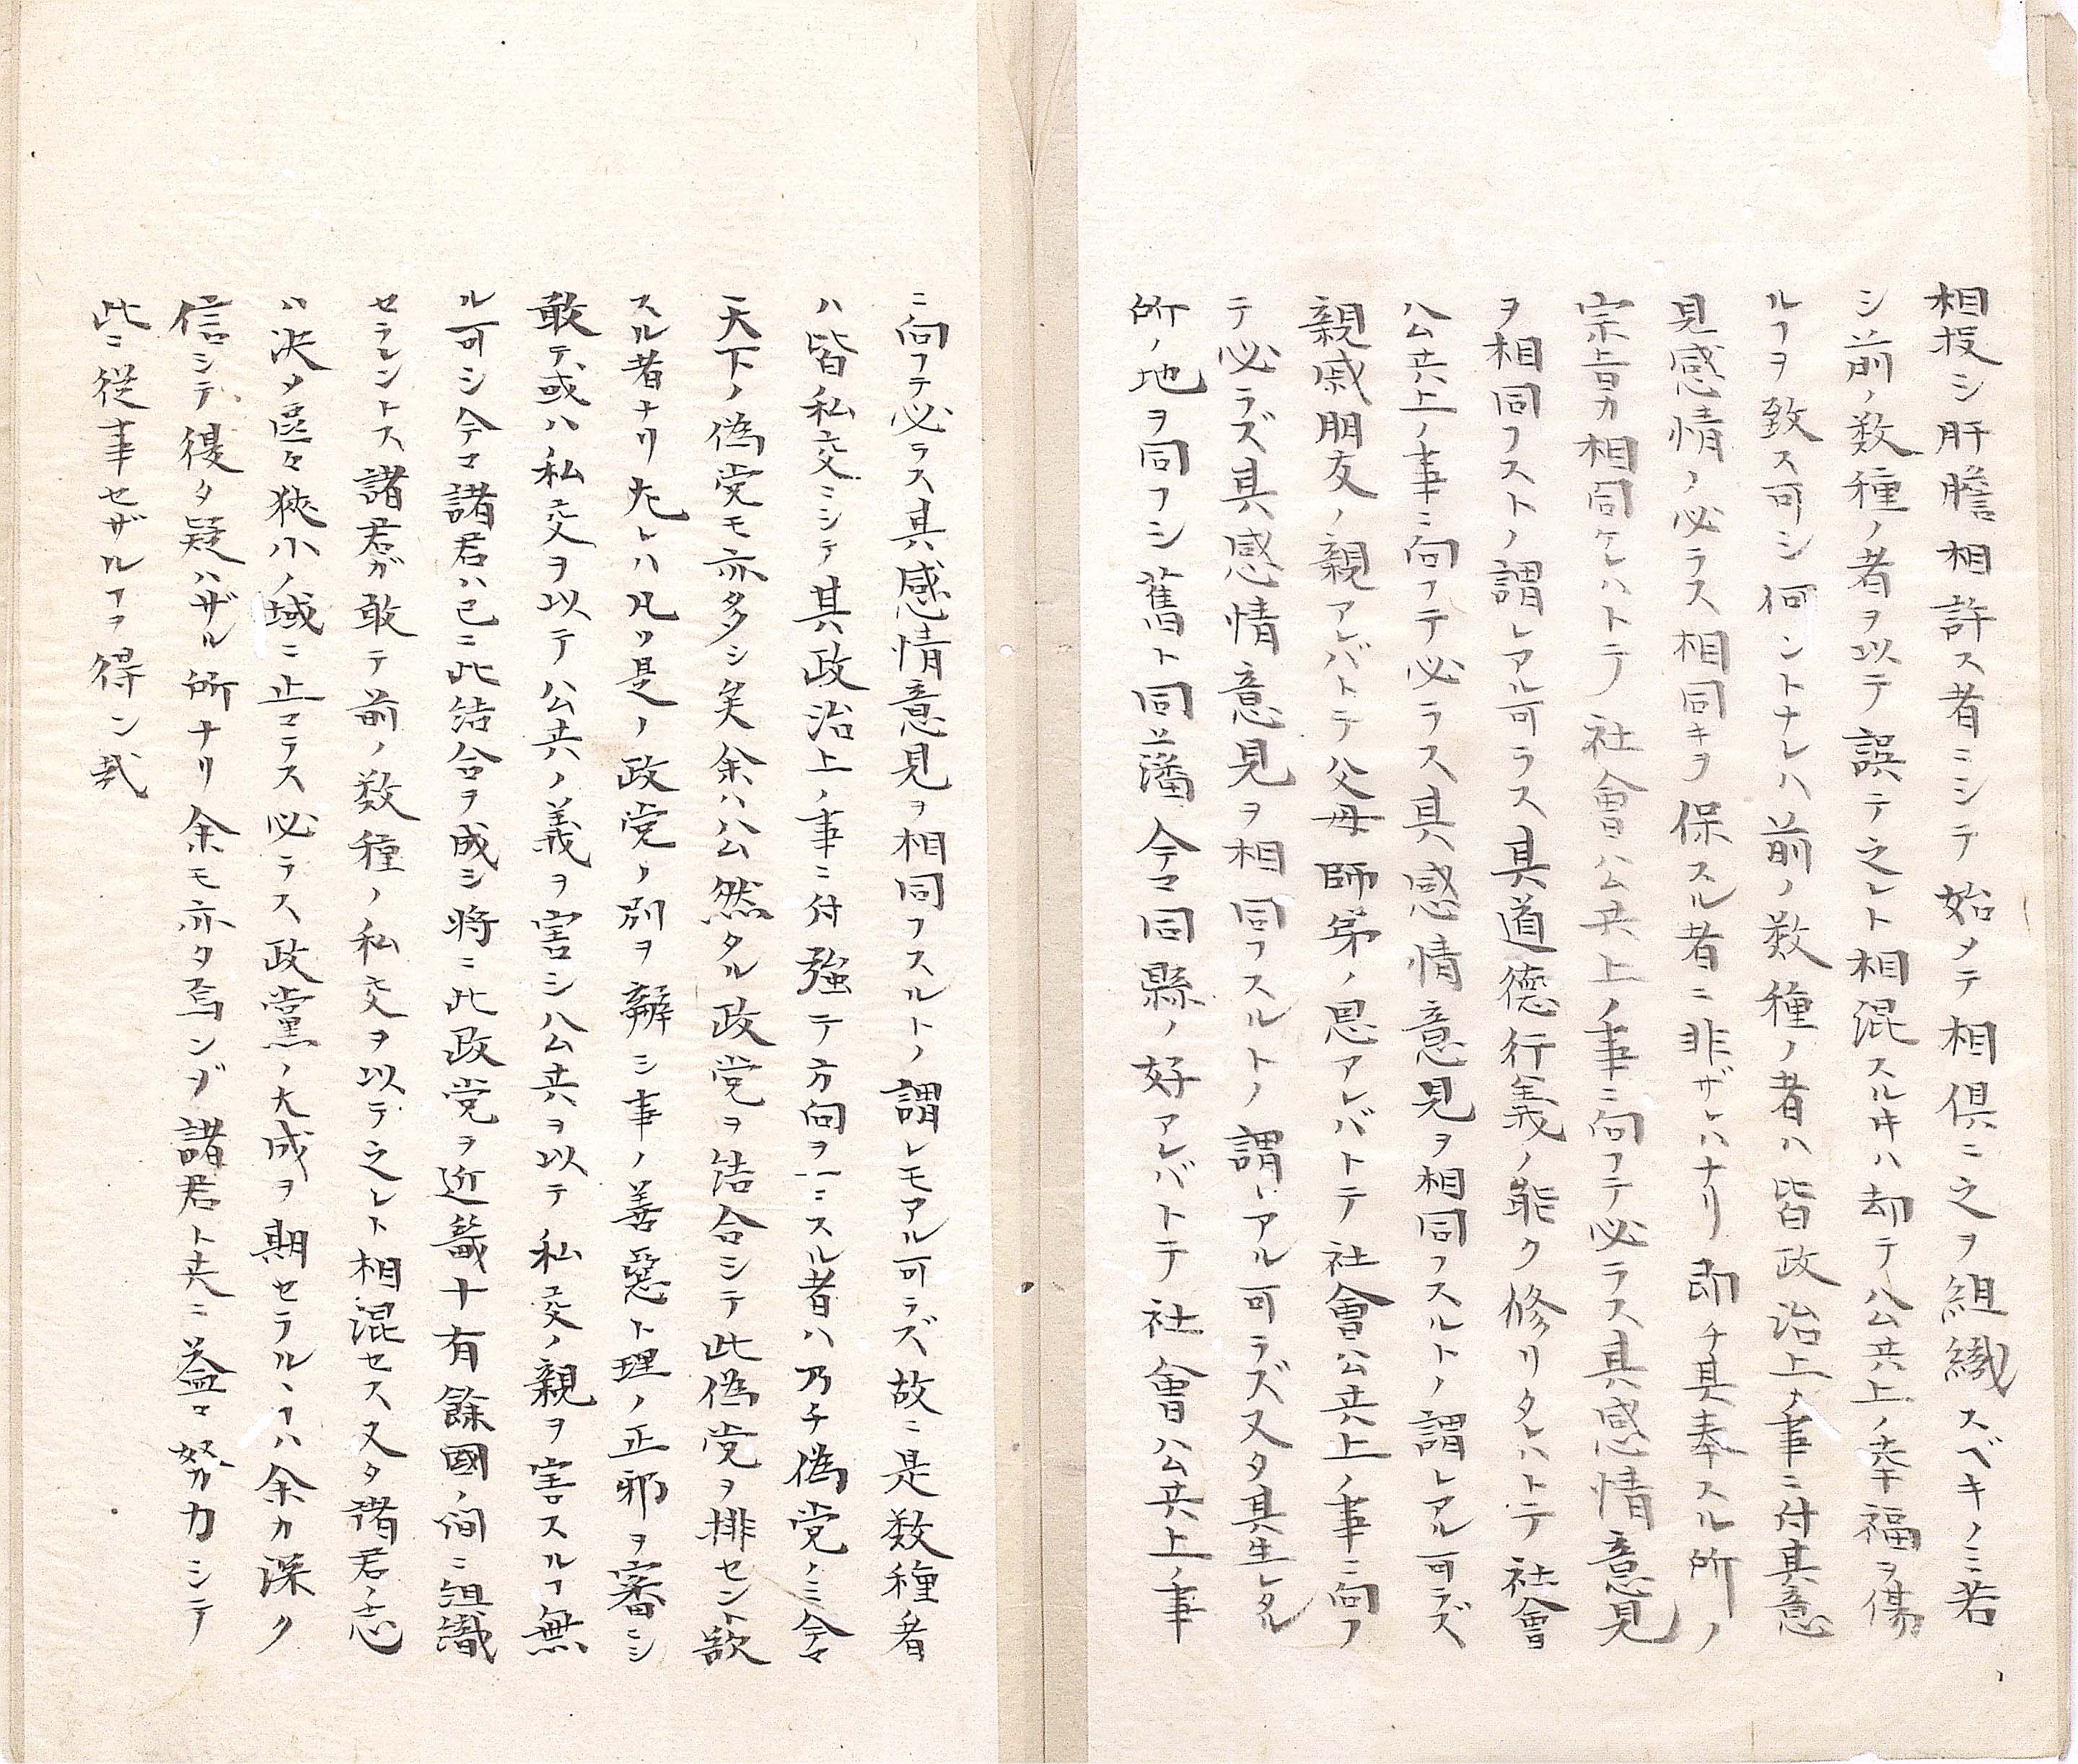 相投シ肝膽相許ス者ニシテ始メテ相倶ニ之ヲ組織スベキノミ若
シ前ノ数種ノ者ヲ以テ誤テ之レト相混スルキハ却テ公共上ノ幸福ヲ傷
ルヿヲ致ス可シ何ントナレハ前ノ数種ノ者ハ皆政治上ノ事ニ付其意
見感情ノ必ラス相同キヲ保スル者ニ非ザレハナリ即チ其奉スル所ノ
宗旨カ相同ケレハトテ社會公共上ノ事ニ向フテ必ラス其感情意見
ヲ相同フストノ謂レアル可ラス其道德行義ノ能ク修リタレハトテ社會
公共上ノ事ニ向フテ必ラス其感情意見ヲ相同フスルトノ謂レアル可ラズ
親戚朋友ノ親アレバトテ父母師弟ノ恩アレバトテ社會公共上ノ事ニ向フ
テ必ラズ其感情意見ヲ相同フスルトノ謂レアル可ラズ又タ其生レタル
所ノ地ヲ同フシ舊ト同藩今マ同縣ノ好アレバトテ社會公共上ノ事
ニ向フテ必ラス其感情意見ヲ相同フスルトノ謂レモアル可ラズ故ニ是数種者
ハ皆私交ミシテ其政治上ノ事ニ付強テ方向ヲ一ニスル者ハ乃チ偽党ノミ今マ
天下ノ偽党モ亦多シ矣余ハ公然タル政党ヲ結合シテ此偽党ヲ排セント欲
スル者ナリ左レハ凡ソ是ノ政党ノ別ヲ辨シ事ノ善惡ト理ノ正邪ヲ審ニシ
敢テ或ハ私交ヲ以テ公共ノ義ヲ害シ公共ヲ以テ私交ノ親ヲ害スルヿ無
ル可シ今マ諸君ハ已ニ此結合ヲ成シ將ニ此政党ヲ近畿十有餘國ノ間ニ組識
セラレントス諸君ガ敢テ前ノ数種ノ私交ヲ以テ之レト相混セス又タ諸君ノ志
ハ決メ區々狹小ノ域ニ止マラス必ラス政黨ノ大成ヲ期セラルヽヿハ余カ深ク
信シテ復タ疑ハザル所ナリ余モ亦タ焉ンゾ諸君ト共ニ益々努力シテ
此ニ従事セザルヿヲ得ン哉